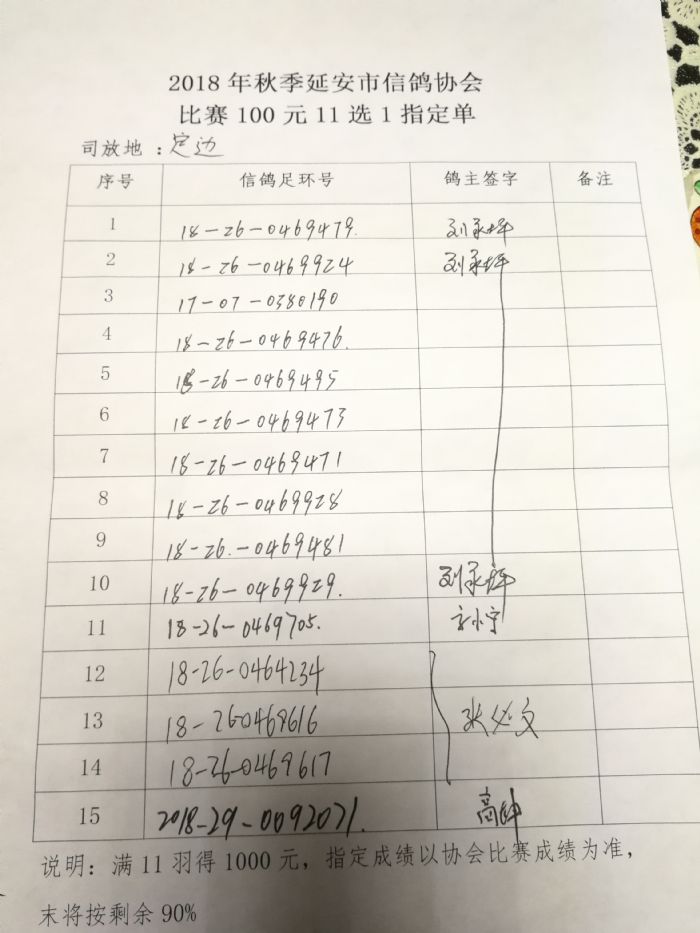 2018年秋季延安市信鸽协会
比赛100元11选1指定单
司放地：定边
序号 信鸽足环号 鸽主签字 备注
1 18-26-0469479. 刘永坪
2 18-26-0469924 刘永坪
3 17-07-0380190
4 18-26-0469476.
5 18-26-0469495
6 18-26-0469473
7 18-26-0469471
8 18-26-0469928
9 18-26.-0469481
10 18-26-0469929. 刘永坪
11 18-26-0469705.
12 18-26-0464234
13 18-26-0469616 张
14 18-26-0469617
15 2018-29-0092021. 高
说明：满11羽得1000元，指定成绩以协会比赛成绩为准，
末将按剩余90%